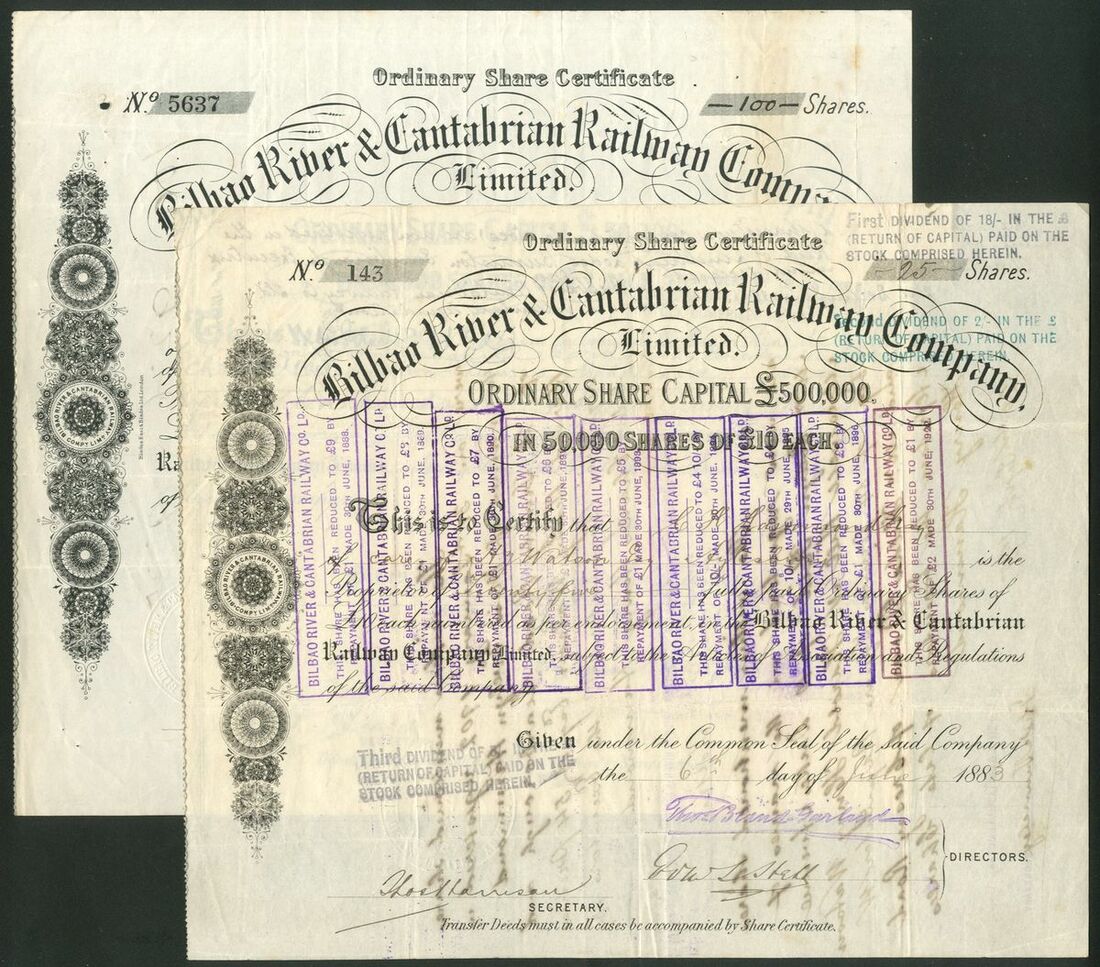 Ordinary Share Certificate
No. 5637
—100— Shares.
Bilbao River & Cantabrian Railway Compa
Limited.
BILBAO RIVER & CANTABRIAN RAILWAY COMPY LIMITED
Ra
of
Ordinary Share Certificate
First DIVIDEND OF 18/- IN THE £
(RETURN OF CAPITAL) PAID ON THE
STOCK COMPRISED HEREIN.
No. 143
—25— Shares.
Bilbao River & Cantabrian Railway Company,
Limited.
Second DIVIDEND OF 2/- IN THE £
(RETURN OF CAPITAL) PAID ON THE
STOCK COMPRISED HEREIN.
ORDINARY SHARE CAPITAL £500,000,
IN 50,000 SHARES OF £10 EACH.
This is to Certify that
Watson
is the
Proprietor of fully paid Ordinary Shares of
£10 each numbered as per endorsement, in the Bilbao River & Cantabrian
Railway Company, Limited, subject to the Articles of Association and Regulations
of the said Company.
BILBAO RIVER & CANTABRIAN RAILWAY CO. LD.
THIS SHARE HAS BEEN REDUCED TO £9 BY
REPAYMENT OF £1 MADE 30TH JUNE, 1888.
BILBAO RIVER & CANTABRIAN RAILWAY CO. LD.
THIS SHARE HAS BEEN REDUCED TO £8 BY
REPAYMENT OF £1 MADE 30TH JUNE,
BILBAO RIVER & CANTABRIAN RAILWAY CO. LD.
THIS SHARE HAS BEEN REDUCED TO £7 BY
REPAYMENT OF £1 MADE 30TH JUNE, 1890.
BILBAO RIVER & CANTABRIAN RAILWAY CO. LD.
THIS SHARE HAS BEEN REDUCED TO £6 BY
REPAYMENT OF £1 MADE 30TH JUNE,
BILBAO RIVER & CANTABRIAN RAILWAY CO. LD.
THIS SHARE HAS BEEN REDUCED TO £5 BY
REPAYMENT OF £1 MADE 30TH JUNE, 1893.
BILBAO RIVER & CANTABRIAN RAILWAY CO. LD.
THIS SHARE HAS BEEN REDUCED TO £4 10/- BY
REPAYMENT OF 10/- MADE 30TH JUNE,
BILBAO RIVER & CANTABRIAN RAILWAY CO. LD.
THIS SHARE HAS BEEN REDUCED TO £4 BY
REPAYMENT OF 10/- MADE 29TH JUNE,
BILBAO RIVER & CANTABRIAN RAILWAY CO. LD.
THIS SHARE HAS BEEN REDUCED TO £3 BY
REPAYMENT OF £1 MADE 30TH JUNE,
BILBAO RIVER & CANTABRIAN RAILWAY CO. LD.
THIS SHARE HAS BEEN REDUCED TO £1 BY
REPAYMENT OF £2 MADE 30TH JUNE,
BILBAO RIVER & CANTABRIAN RAILWAY COMPY LIMITED
Given under the Common Seal of the said Company
the 6th day of June 1883
Third DIVIDEND OF IN THE £
(RETURN OF CAPITAL) PAID ON THE
STOCK COMPRISED HEREIN.
Thos Bland Garland
DIRECTORS.
Thos Harrison
SECRETARY.
Transfer Deeds must in all cases be accompanied by Share Certificate.